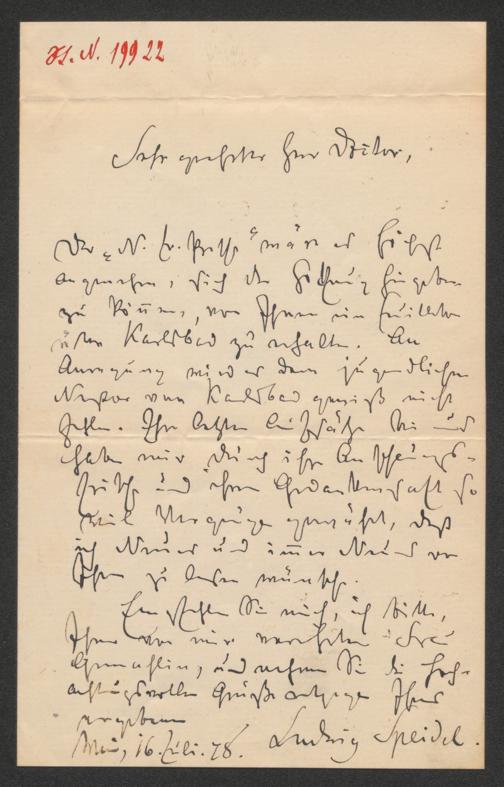 H. N. 19922
Sehr geehrter Herr Doctor,
Der „N. Fr. Presse“ wäre es höchst
angenehm, sich der Hoffnung hingeben
zu können, von Ihnen ein Feuilleton
über Karlsbad zu erhalten. An
Anregung wird es dem jugendlichen
Nestor von Karlsbad gewiß nicht
fehlen. Ihre letzten Aufsätze bei uns
haben mir durch ihre Anschauungs-
frische und ihren Gedankengehalt so
viel Vergnügen gewährt, daß
ich Neues und immer Neues von
Ihnen zu lesen wünsche.
Empfehlen Sie mich, ich bitte,
Ihrer von mir verehrten Frau
Gemahlin, und nehmen Sie die hoch-
achtungsvollen Grüße entgegen Ihres
ergebenen
Wien, 16. Juli. 78. Ludwig Speidel.